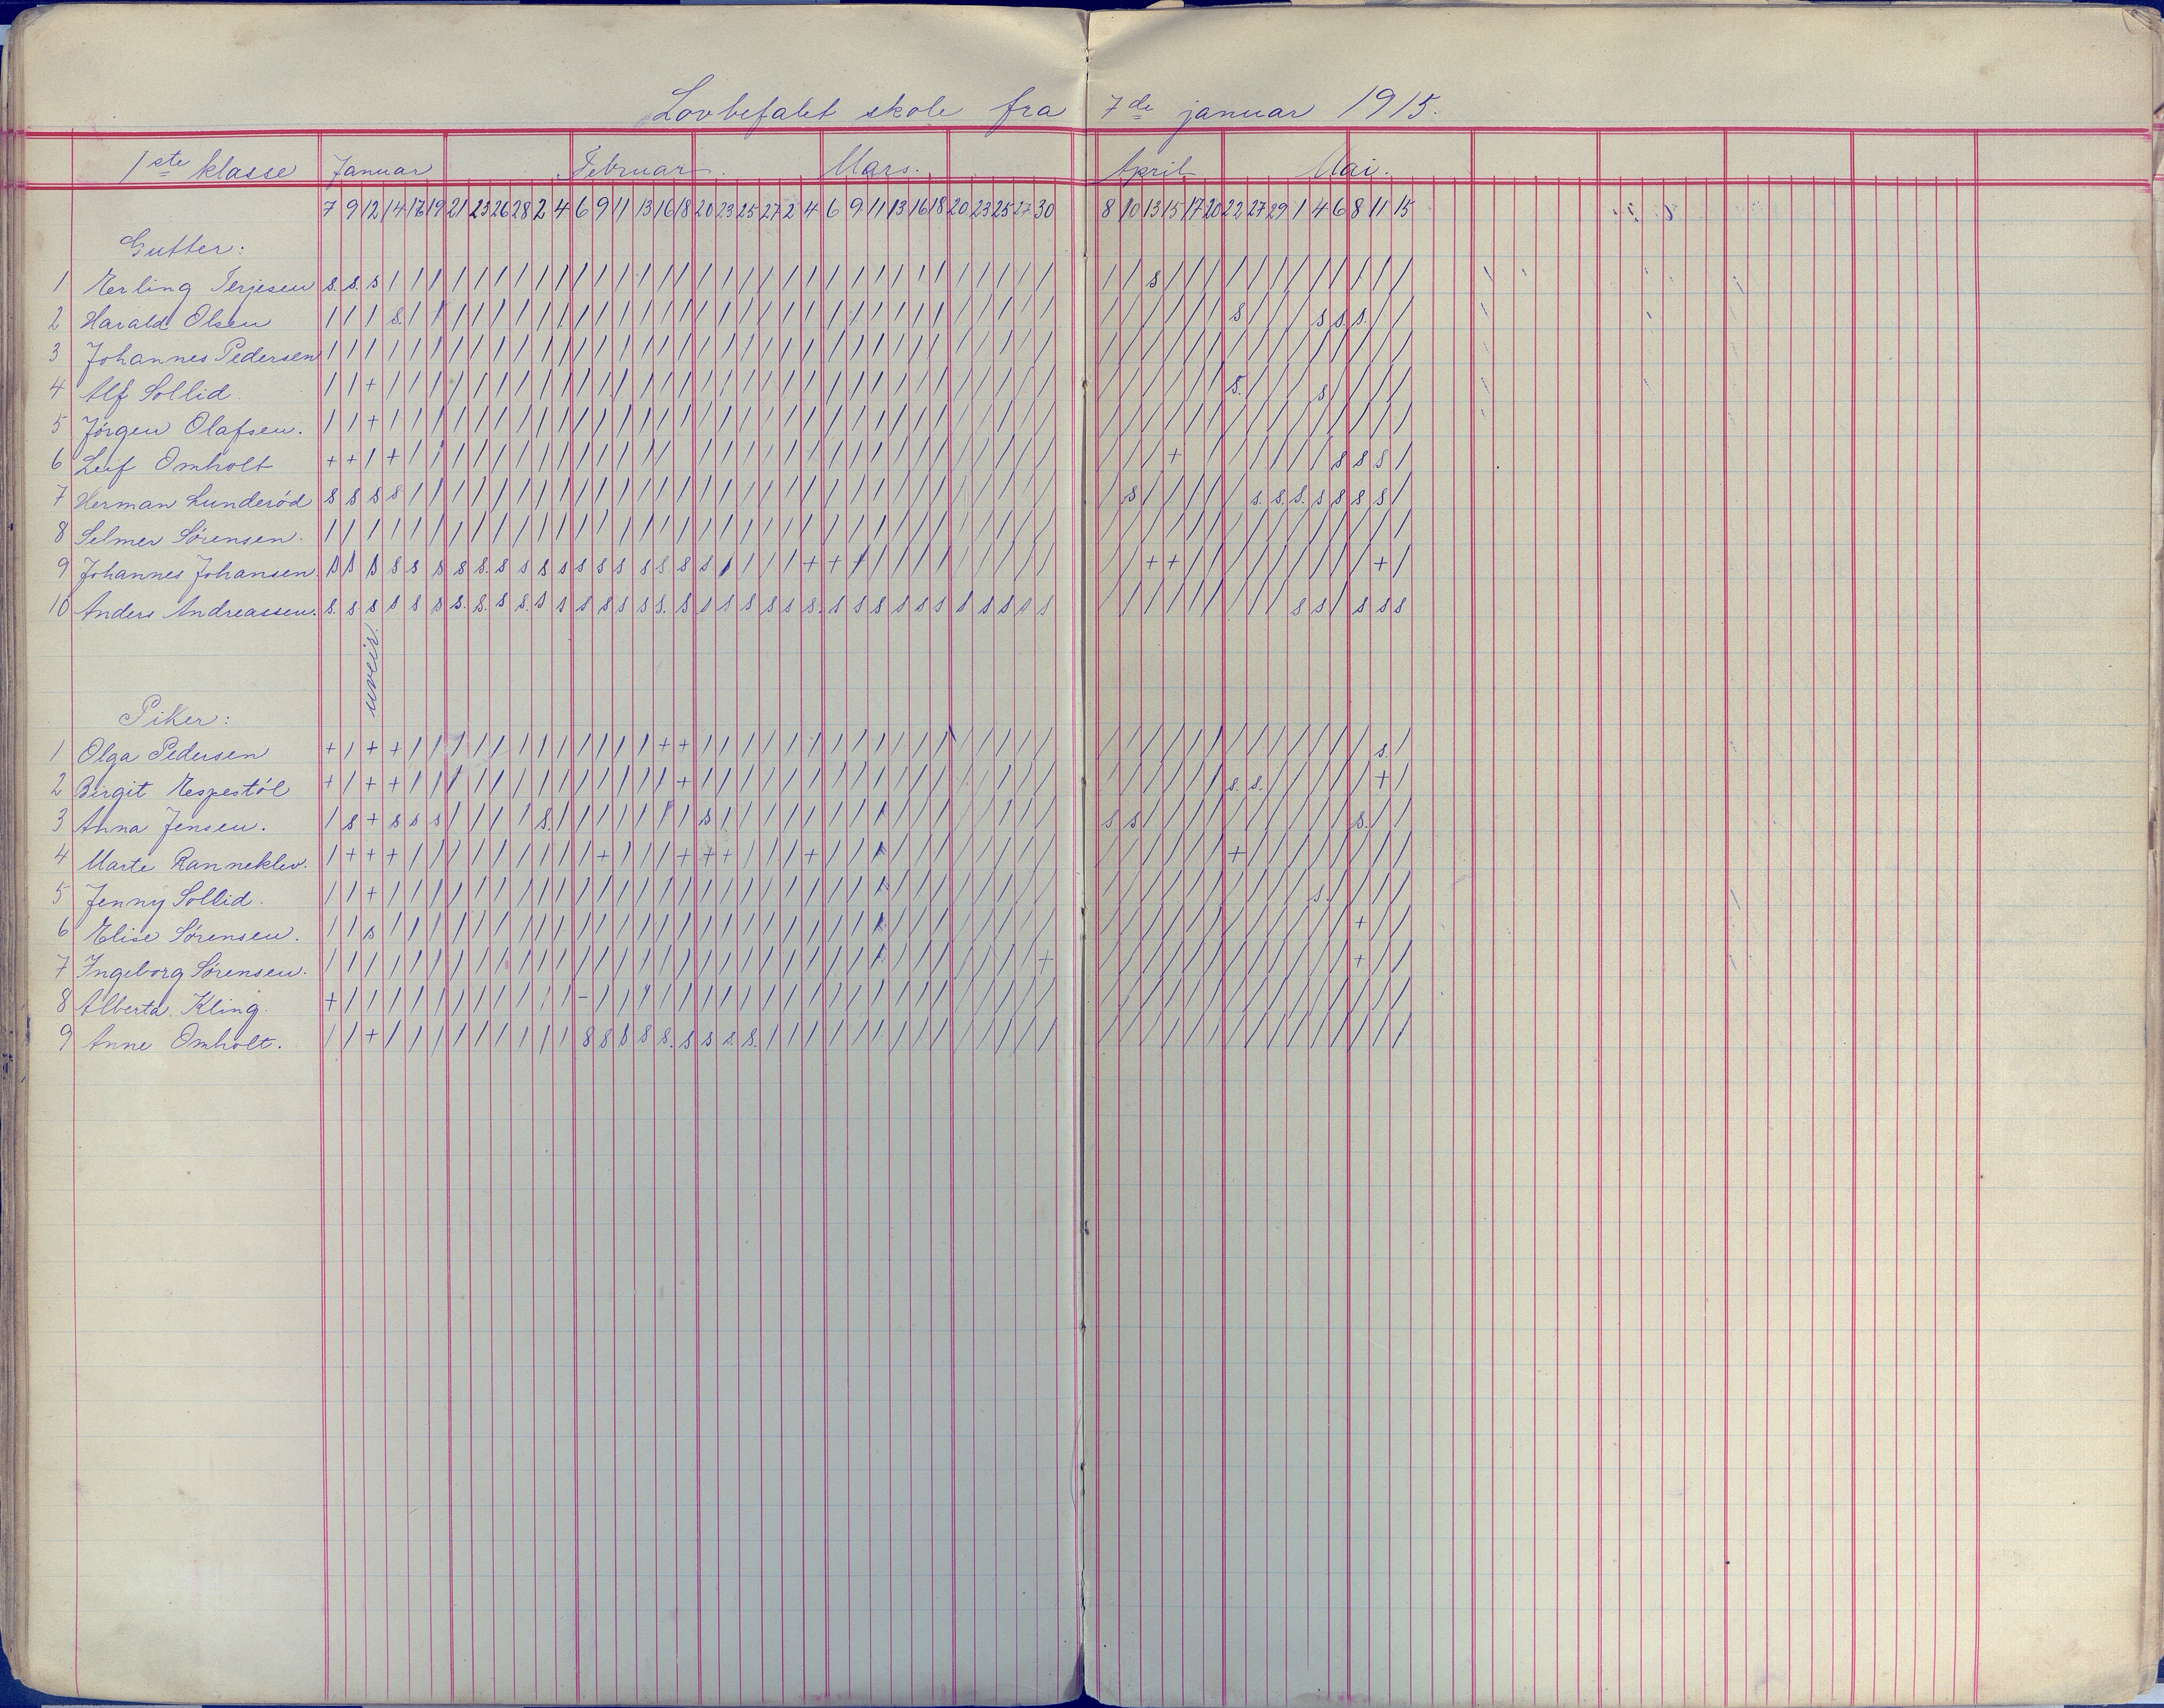 Lovbefalet skole fra 7de januar 1915.
1ste klasse Januar Februar. Mars. April Mai.
7 9 12 14 16 19 21 23 26 28 2 4 6 9 11 13 16 18 20 23 25 27 2 4 6 9 11 13 16 18 20 23 25 27 30 8 10 13 15 17 20 22 27 29 1 4 6 8 11 15
Gutter:
1 Erling Terjesen
2 Harald Olsen
3 Johannes Pedersen
4 Alf Sollid.
5 Jörgen Olafsen.
6 Leif Omholt
7 Herman Lunderöd
8 Selmer Sörensen.
9 Johannes Johansen
10 Anders Andreassen.
uveir.
Piker:
1 Olga Pedersen
2 Birgit Espestöl
3 Anna Jensen.
4 Marte Ranneklev.
5 Jenny Sollid.
6 Elise Sörensen.
7 Ingeborg Sörensen.
8 Alberta Kling.
9 Anne Omholt.